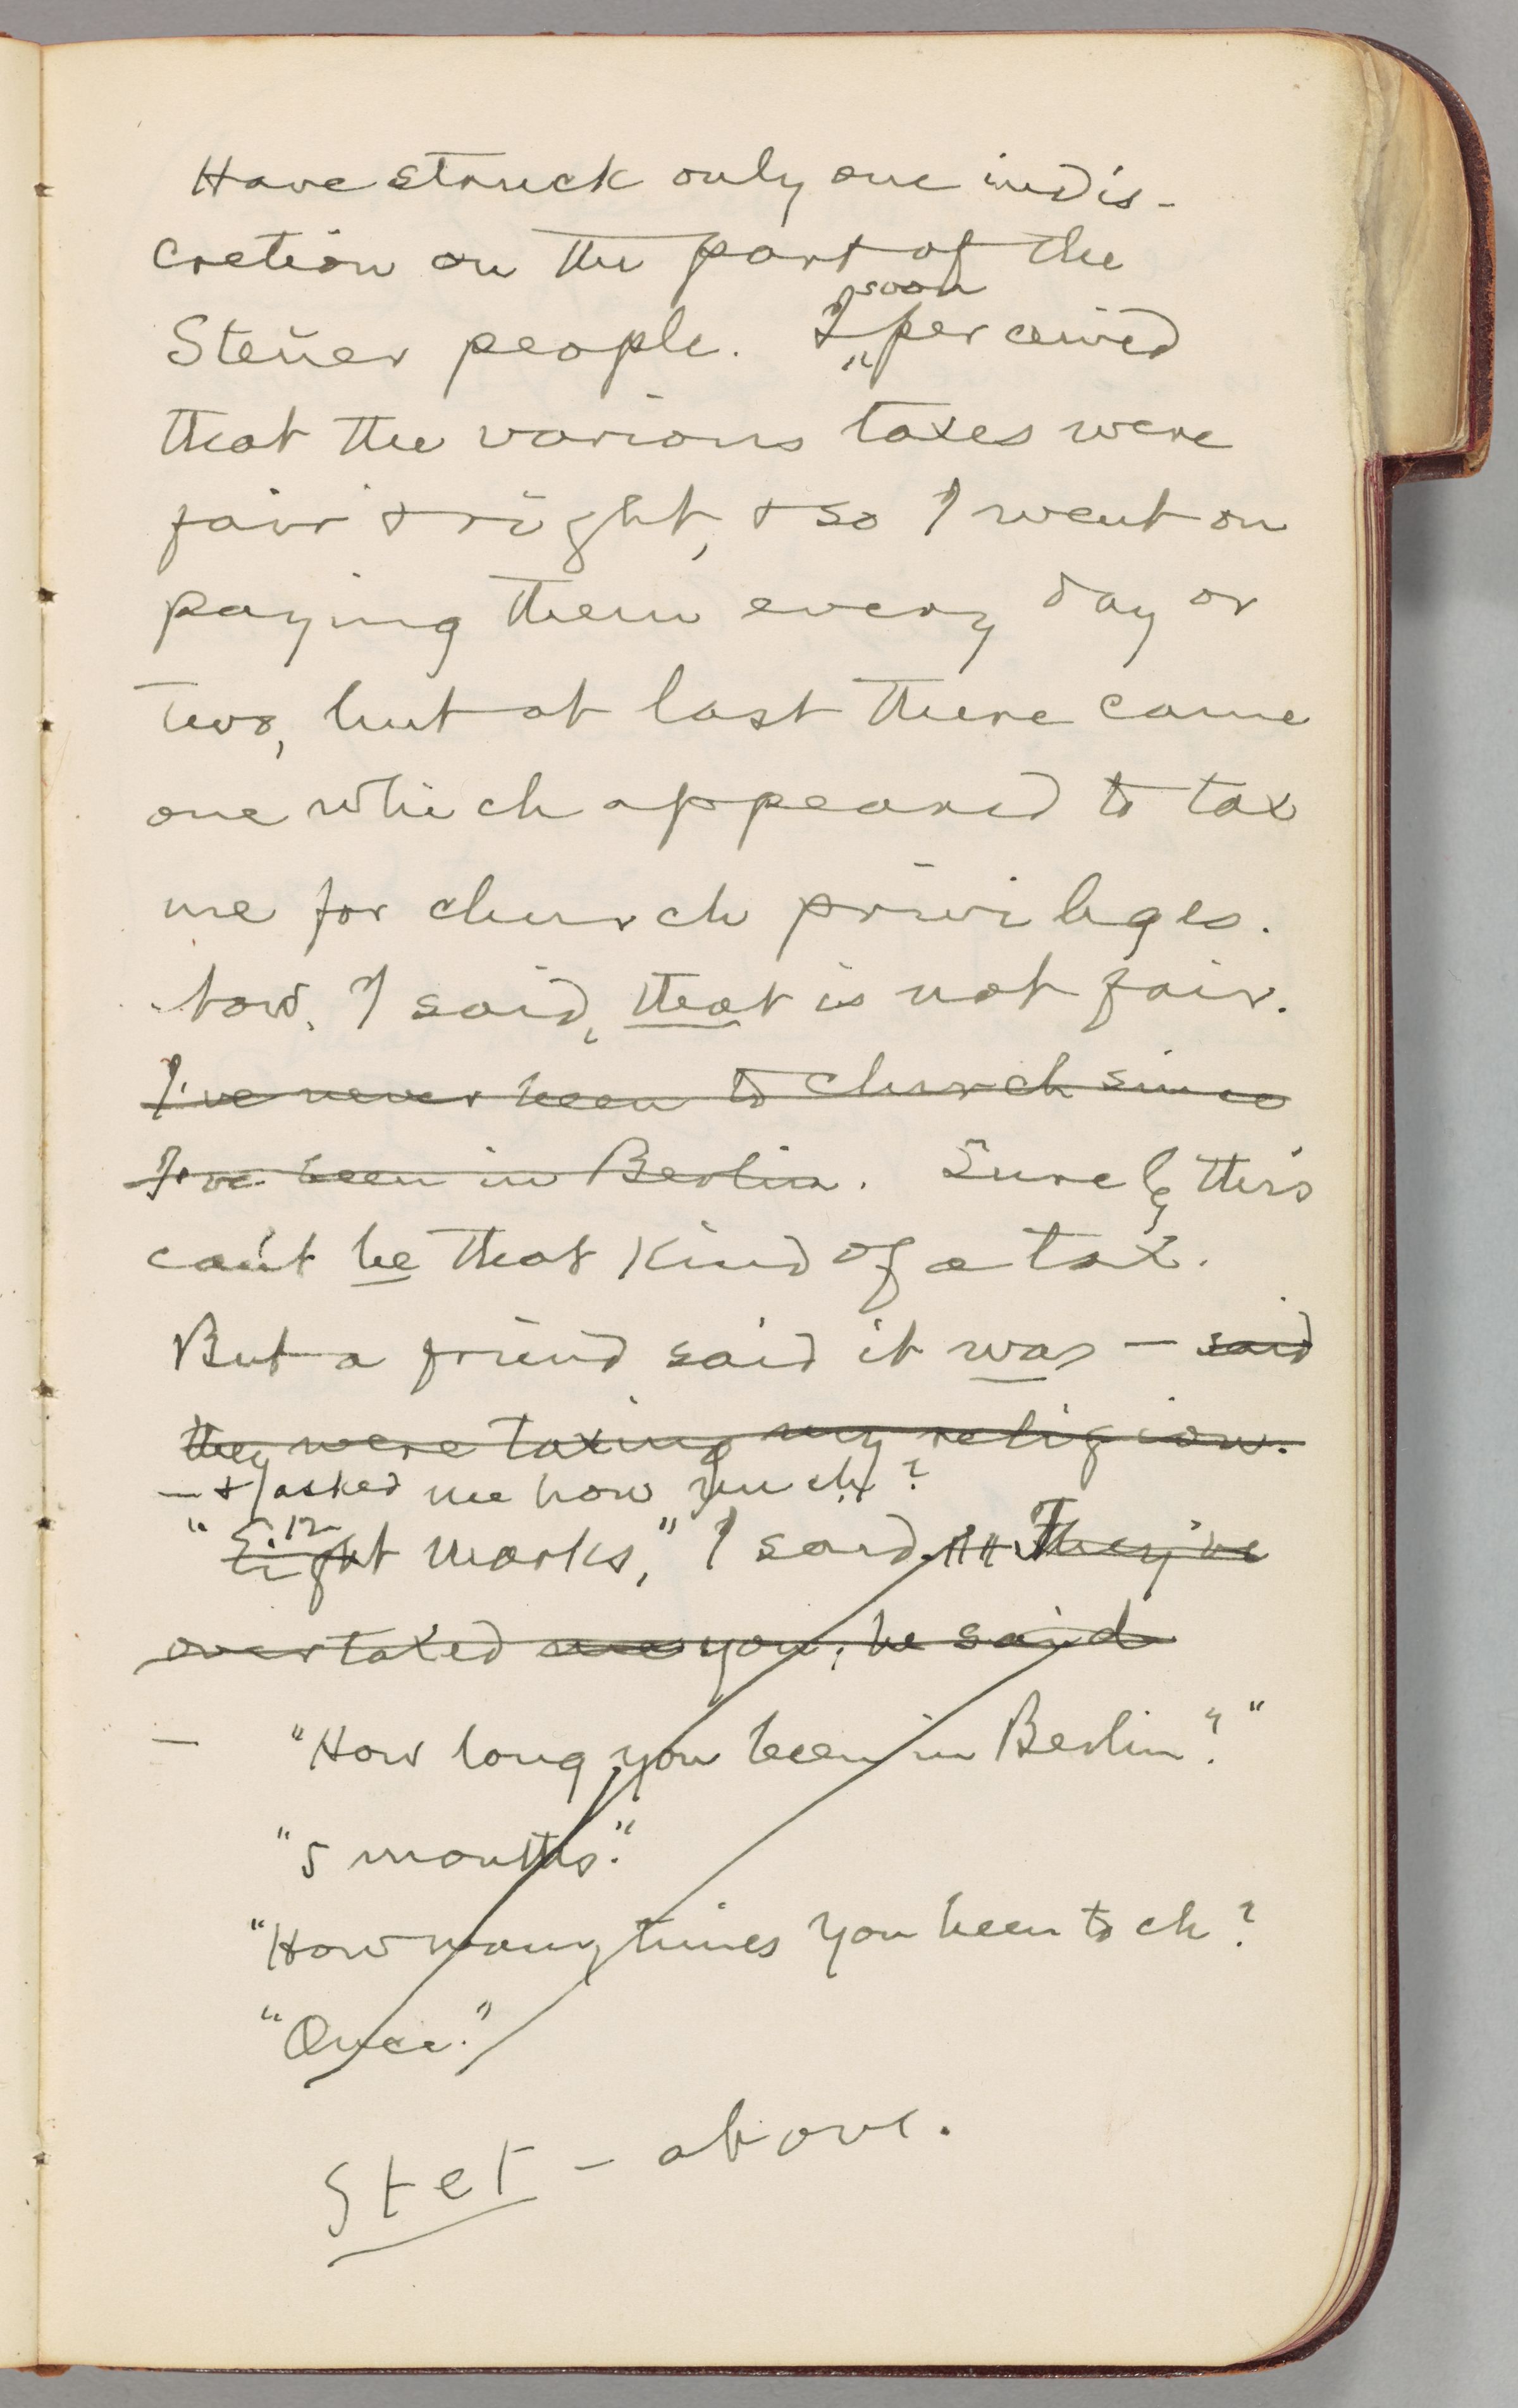 Have struck only one indis-
cretion on the part of the
soon
Steuer people. I perceived
that the various taxes were
fair & right, & so I went on
paying them every day or
two, but at last there came
one which appeared to tax
me for church privileges.
Now, I said, that is not fair.
I've never been to church since
I've been in Berlin. Surely this
can't be that kind of a tax.
But a friend said it was — said
they were taxing my religion.
— & asked me how much?
12
"Eight marks," I said. They've
overtaxed me you, he said
— "How long you been in Berlin?"
"5 months."
"How many times you been to ch?
"Once."
Stet - above.